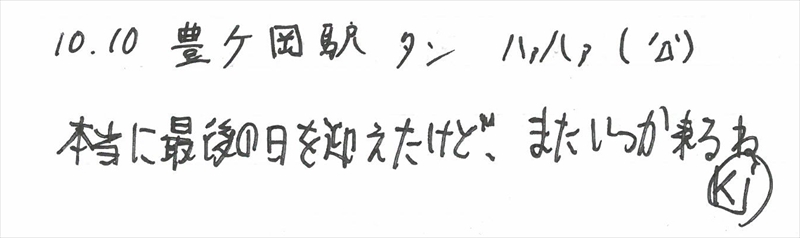 10.10 豊ケ岡駅 タン ハァハァ(公)
本当に最後の日を迎えたけど、またいつか来るね
Ki